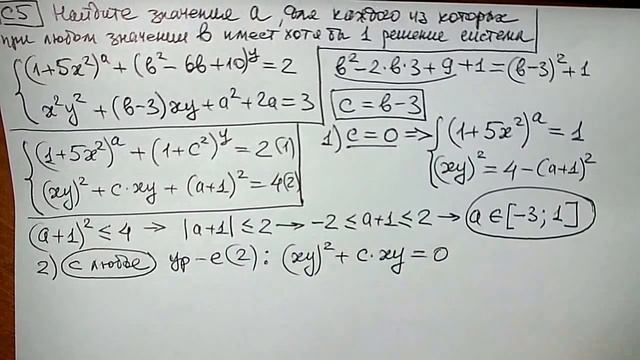 C5 Найдите значения a, для каждого из которых
при любом значении в имеет хотя бы 1 решение система
(1+5x²)ᵃ + (в² - 6в + 10)ʸ = 2
x²y² + (в-3)xy + a² + 2a = 3
в² - 2·в·3 + 9 + 1 = (в-3)² + 1
c = в - 3
(1+5x²)ᵃ + (1+c²)ʸ = 2 (1)
(xy)² + c·xy + (a+1)² = 4 (2)
1) c = 0 ⇒ (1+5x²)ᵃ = 1
(xy)² = 4 - (a+1)²
(a+1)² ≤ 4 → |a+1| ≤ 2 → -2 ≤ a+1 ≤ 2 → a ∈ [-3; 1]
2) c любое ур-е (2): (xy)² + c·xy = 0